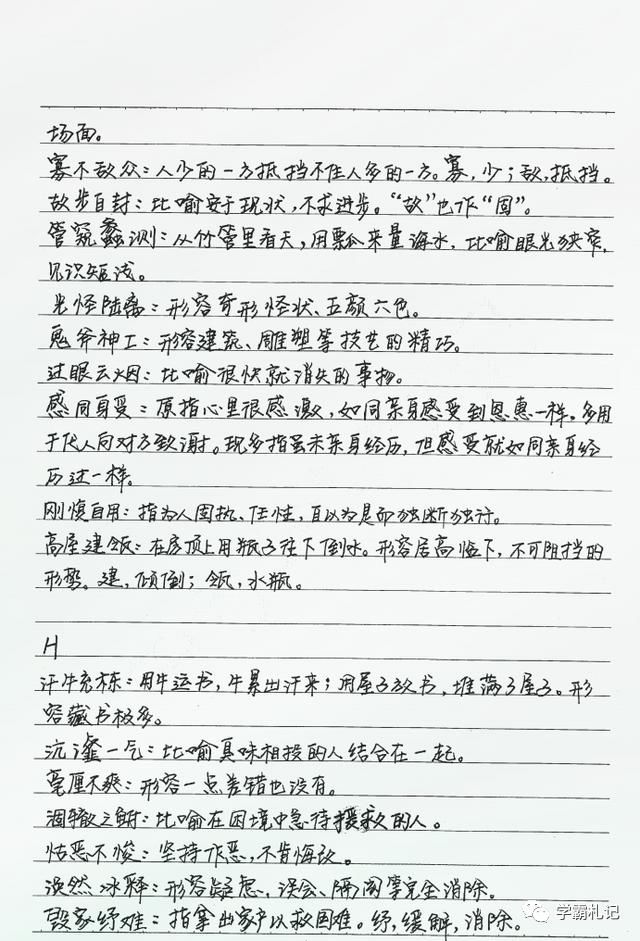 场面。
寡不敌众：人少的一方抵挡不住人多的一方。寡，少；敌，抵挡。
故步自封：比喻安于现状，不求进步。“故”也作“固”。
管窥蠡测：从竹管里看天，用瓢来量海水，比喻眼光狭窄，
见识短浅。
光怪陆离：形容奇形怪状、五颜六色。
鬼斧神工：形容建筑、雕塑等技艺的精巧。
过眼云烟：比喻很快就消失的事物。
感同身受：原指心里很感激，如同亲身感受到恩惠一样。多用
于代人向对方致谢。现多指虽未亲身经历，但感受就如同亲身经
历过一样。
刚愎自用：指为人固执、任性，自以为是而独断独行。
高屋建瓴：在房顶上用瓶子往下倒水。形容居高临下，不可阻挡的
形势。建，倾倒；瓴，水瓶。
H
汗牛充栋：用牛运书，牛累出汗来；用屋子放书，堆满了屋子。形
容藏书极多。
沆瀣一气：比喻臭味相投的人结合在一起。
毫厘不爽：形容一点差错也没有。
涸辙之鲋：比喻在困境中急待援救的人。
怙恶不悛：坚持作恶，不肯悔改。
涣然冰释：形容疑虑、误会、隔阂等完全消除。
毁家纾难：指拿出家产以救国难。纾，缓解，消除。
学霸札记